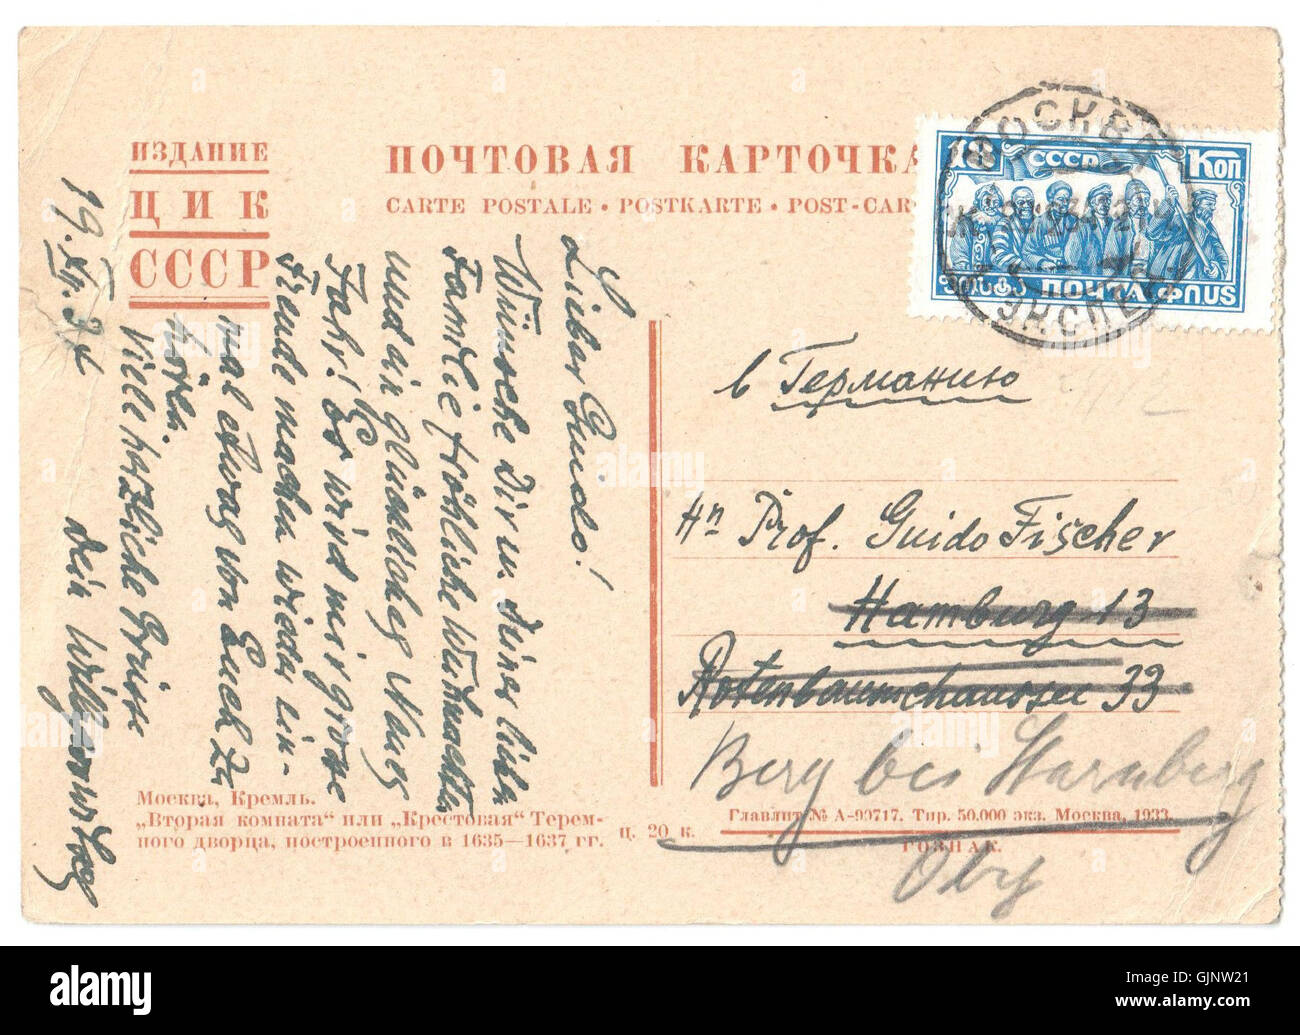 ИЗДАНИЕ
ЦИК
СССР
ПОЧТОВАЯ КАРТОЧКА
CARTE POSTALE • POSTKARTE • POST-CAR
18 СССР Коп
ПОЧТА
МОСКВА
ЭКСПЕД
19. XII. 34
Lieber Guido!
Wünsche Dir u. Deiner lieben
Familie fröhliche Weihnachten
und ein glückliches Neues
Jahr! Es wird mir grosse
Freude machen wieder ein-
mal etwas von Euch zu
hören.
Viele herzliche Grüsse
Dein
в Германию
Hn Prof. Guido Fischer
Hamburg 13
Rotenbaumchaussee 33
Berg bei Starnberg
Oby
Москва, Кремль.
„Вторая комната“ или „Крестовая“ Терем-
ного дворца, построенного в 1635—1637 гг.
ц. 20 к.
Главлит № А-90717. Тир. 50.000 экз. Москва, 1933.
ГОЗНАК.
alamy
Image ID: GJNW21
www.alamy.com